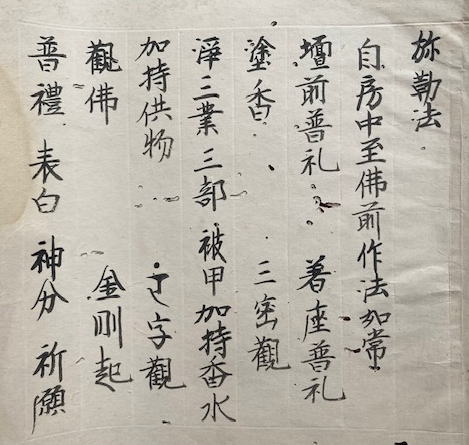 弥勒法
自房中至佛前作法如常
壇前普礼 著座普礼
塗香 三密觀
淨三業 三部 被甲 加持香水
加持供物 字觀
觀佛 金剛起
普禮 表白 神分 祈願